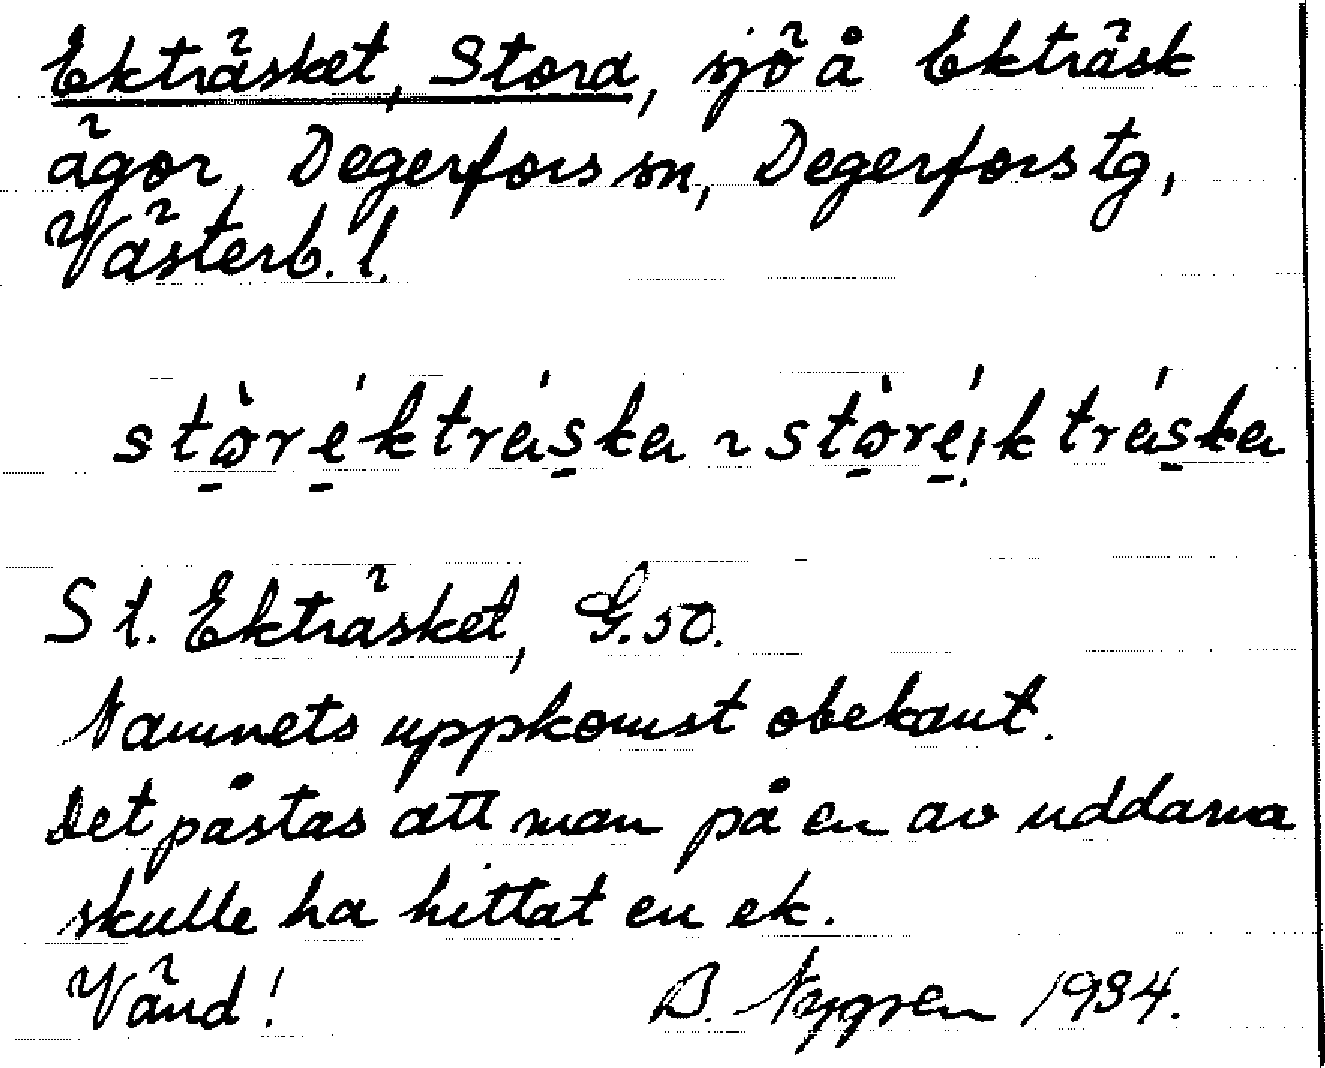 Ekträsket, Stora, sjö å Ekträsk
ägor, Degerfors sn, Degerfors tg,
Västerb. l.
stòrékträska ~ stòréˌk träska
St. Ekträsket, G.50.
Namnets uppkomst obekant.
Det påstas att man på en av uddarna
skulle ha hittat en ek.
Vänd! B. Nygren 1934.